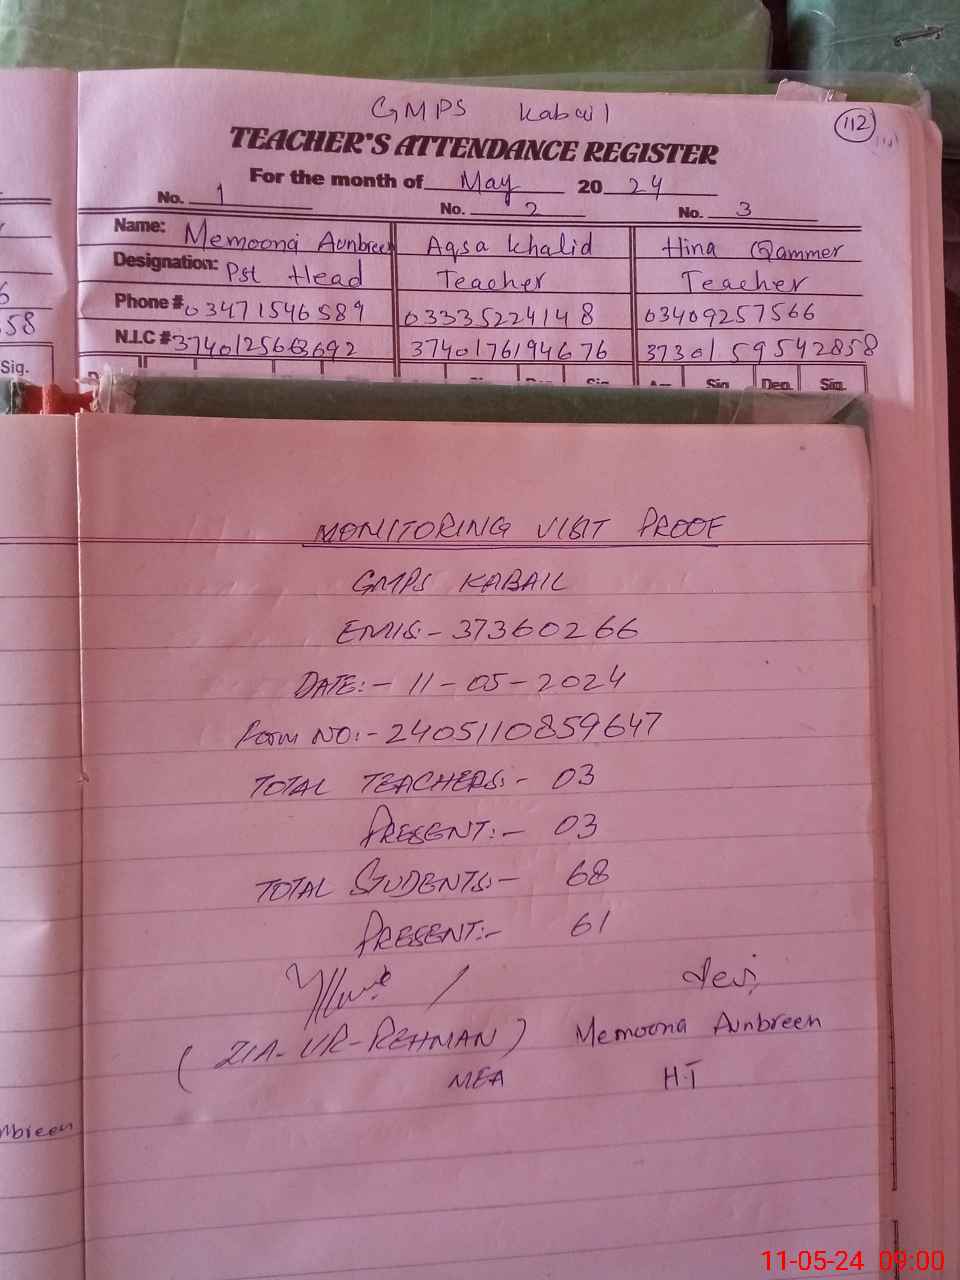 GMPS Kabail
112
TEACHER'S ATTENDANCE REGISTER
For the month of May 2024
No. 1 No. 2 No. 3
Name: Memoona Aunbreen Aqsa Khalid Hina Qammer
Designation: Pst Head Teacher Teacher
Phone # 03471546589 03335224148 03409257566
N.I.C # 3740176194676 3730159542858
Sig.
Sig. Dep. Sig.
58
MONITORING VISIT PROOF
GMPS KABAIL
EMIS:- 37360266
DATE:- 11-05-2024
Form NO:- 2405110859647
TOTAL TEACHERS:- 03
PRESENT:- 03
TOTAL STUDENTS:- 68
PRESENT:- 61
(ZIA-UR-REHMAN) Memoona Aunbreen
MEA H.T
nbreen
11-05-24 09:00